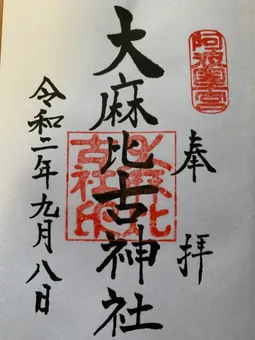 阿波一宮
奉拝
大麻比古神社
大麻比古社印
令和二年九月八日